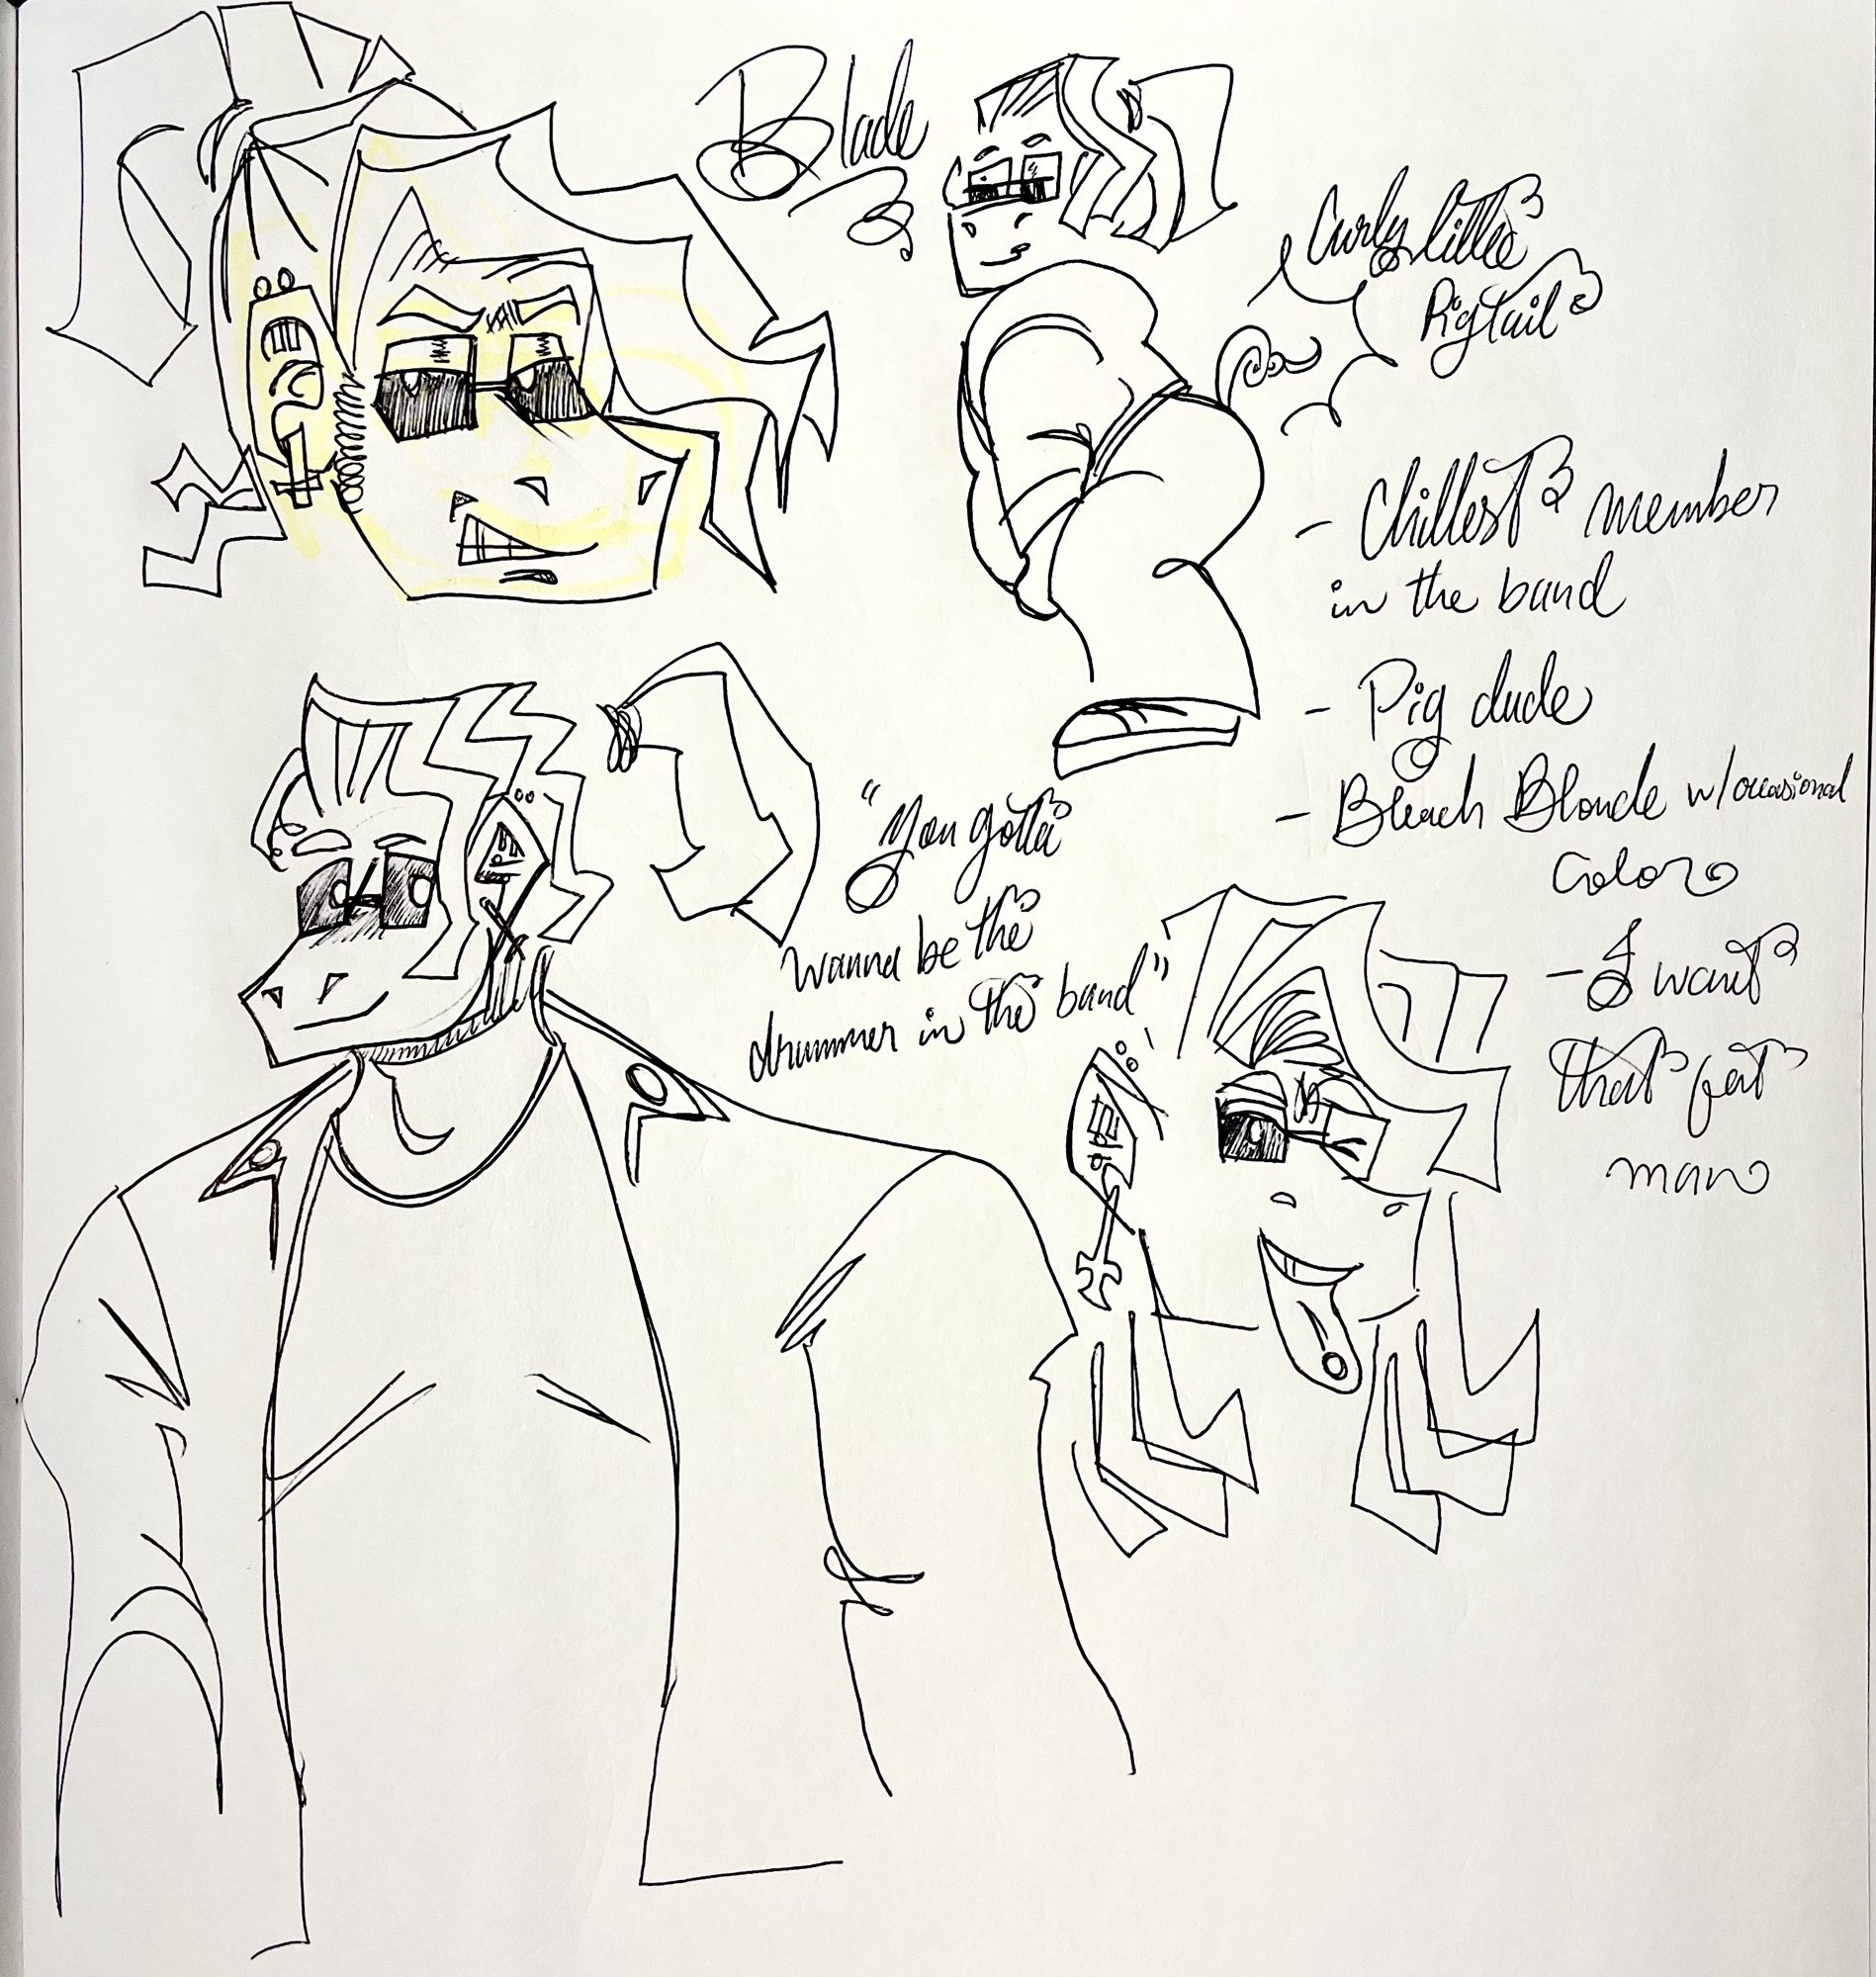 Blade
Curly little
Pigtail
- Chillest member
in the band
- Pig dude
- Bleach Blonde w/occasional
Color
- I want
that fat
man
"You gotta
wanna be the
drummer in the band"